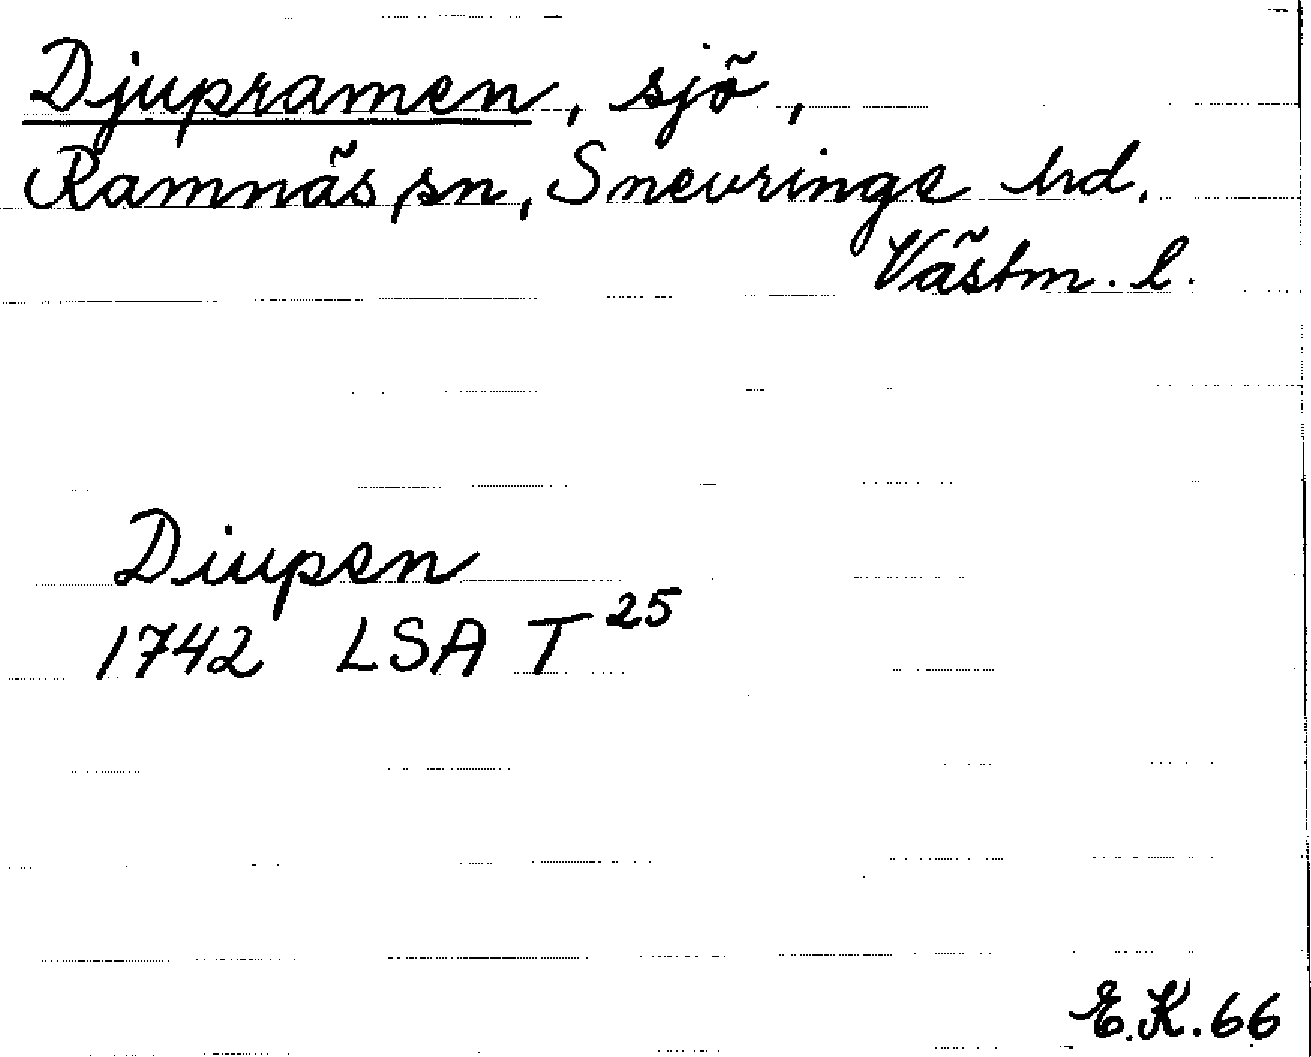 Djupramen, sjö,
Ramnäs sn, Snevringe hd.
Västm. l.
Diupen
1742 LSA T 25
E.K. 66